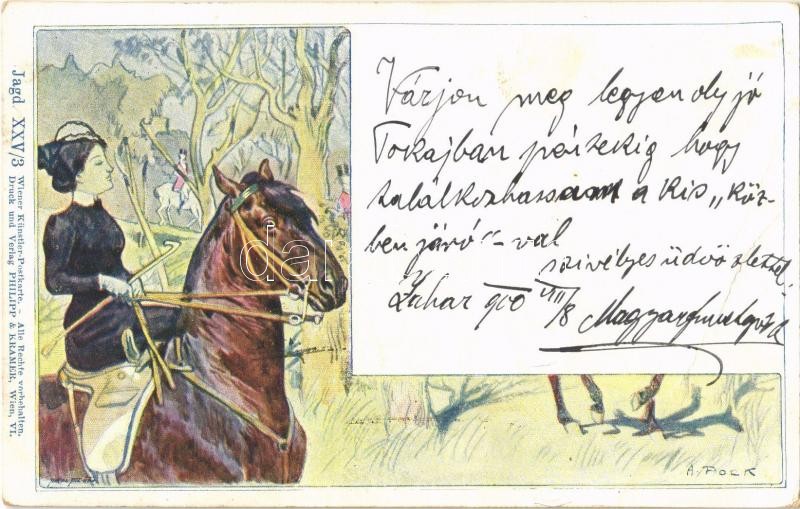 Jagd. XXV/3
Wiener Künstler-Postkarte. – Alle Rechte vorbehalten.
Druck und Verlag PHILIPP & KRAMER, Wien, VI.
Várjon meg legyen oly jó
Tokajban péntekig hogy
találkozhassam a Kis „köz-
ben járó"-val
szivélyes üdvözlettel
900 VIII/8
A. POCK
dai